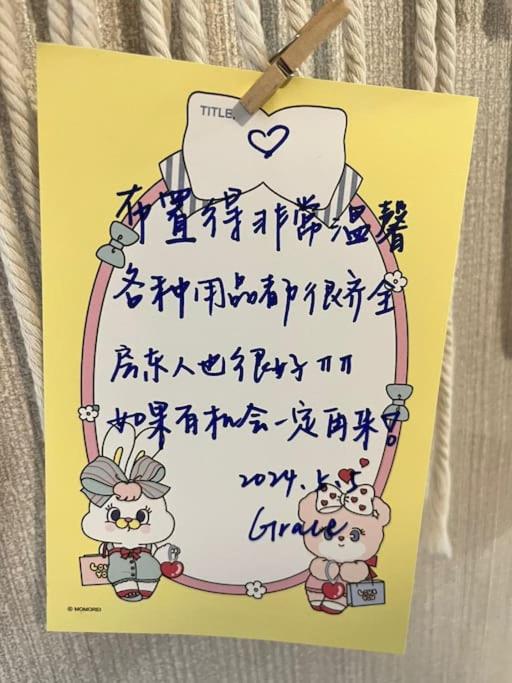 TITLE
布置得非常温馨
各种用品都很齐全
房东人也很好ππ
如果有机会一定再来!
2024.5.5
Grace
LOVE YOU
LOVE YOU
© MOMOREI